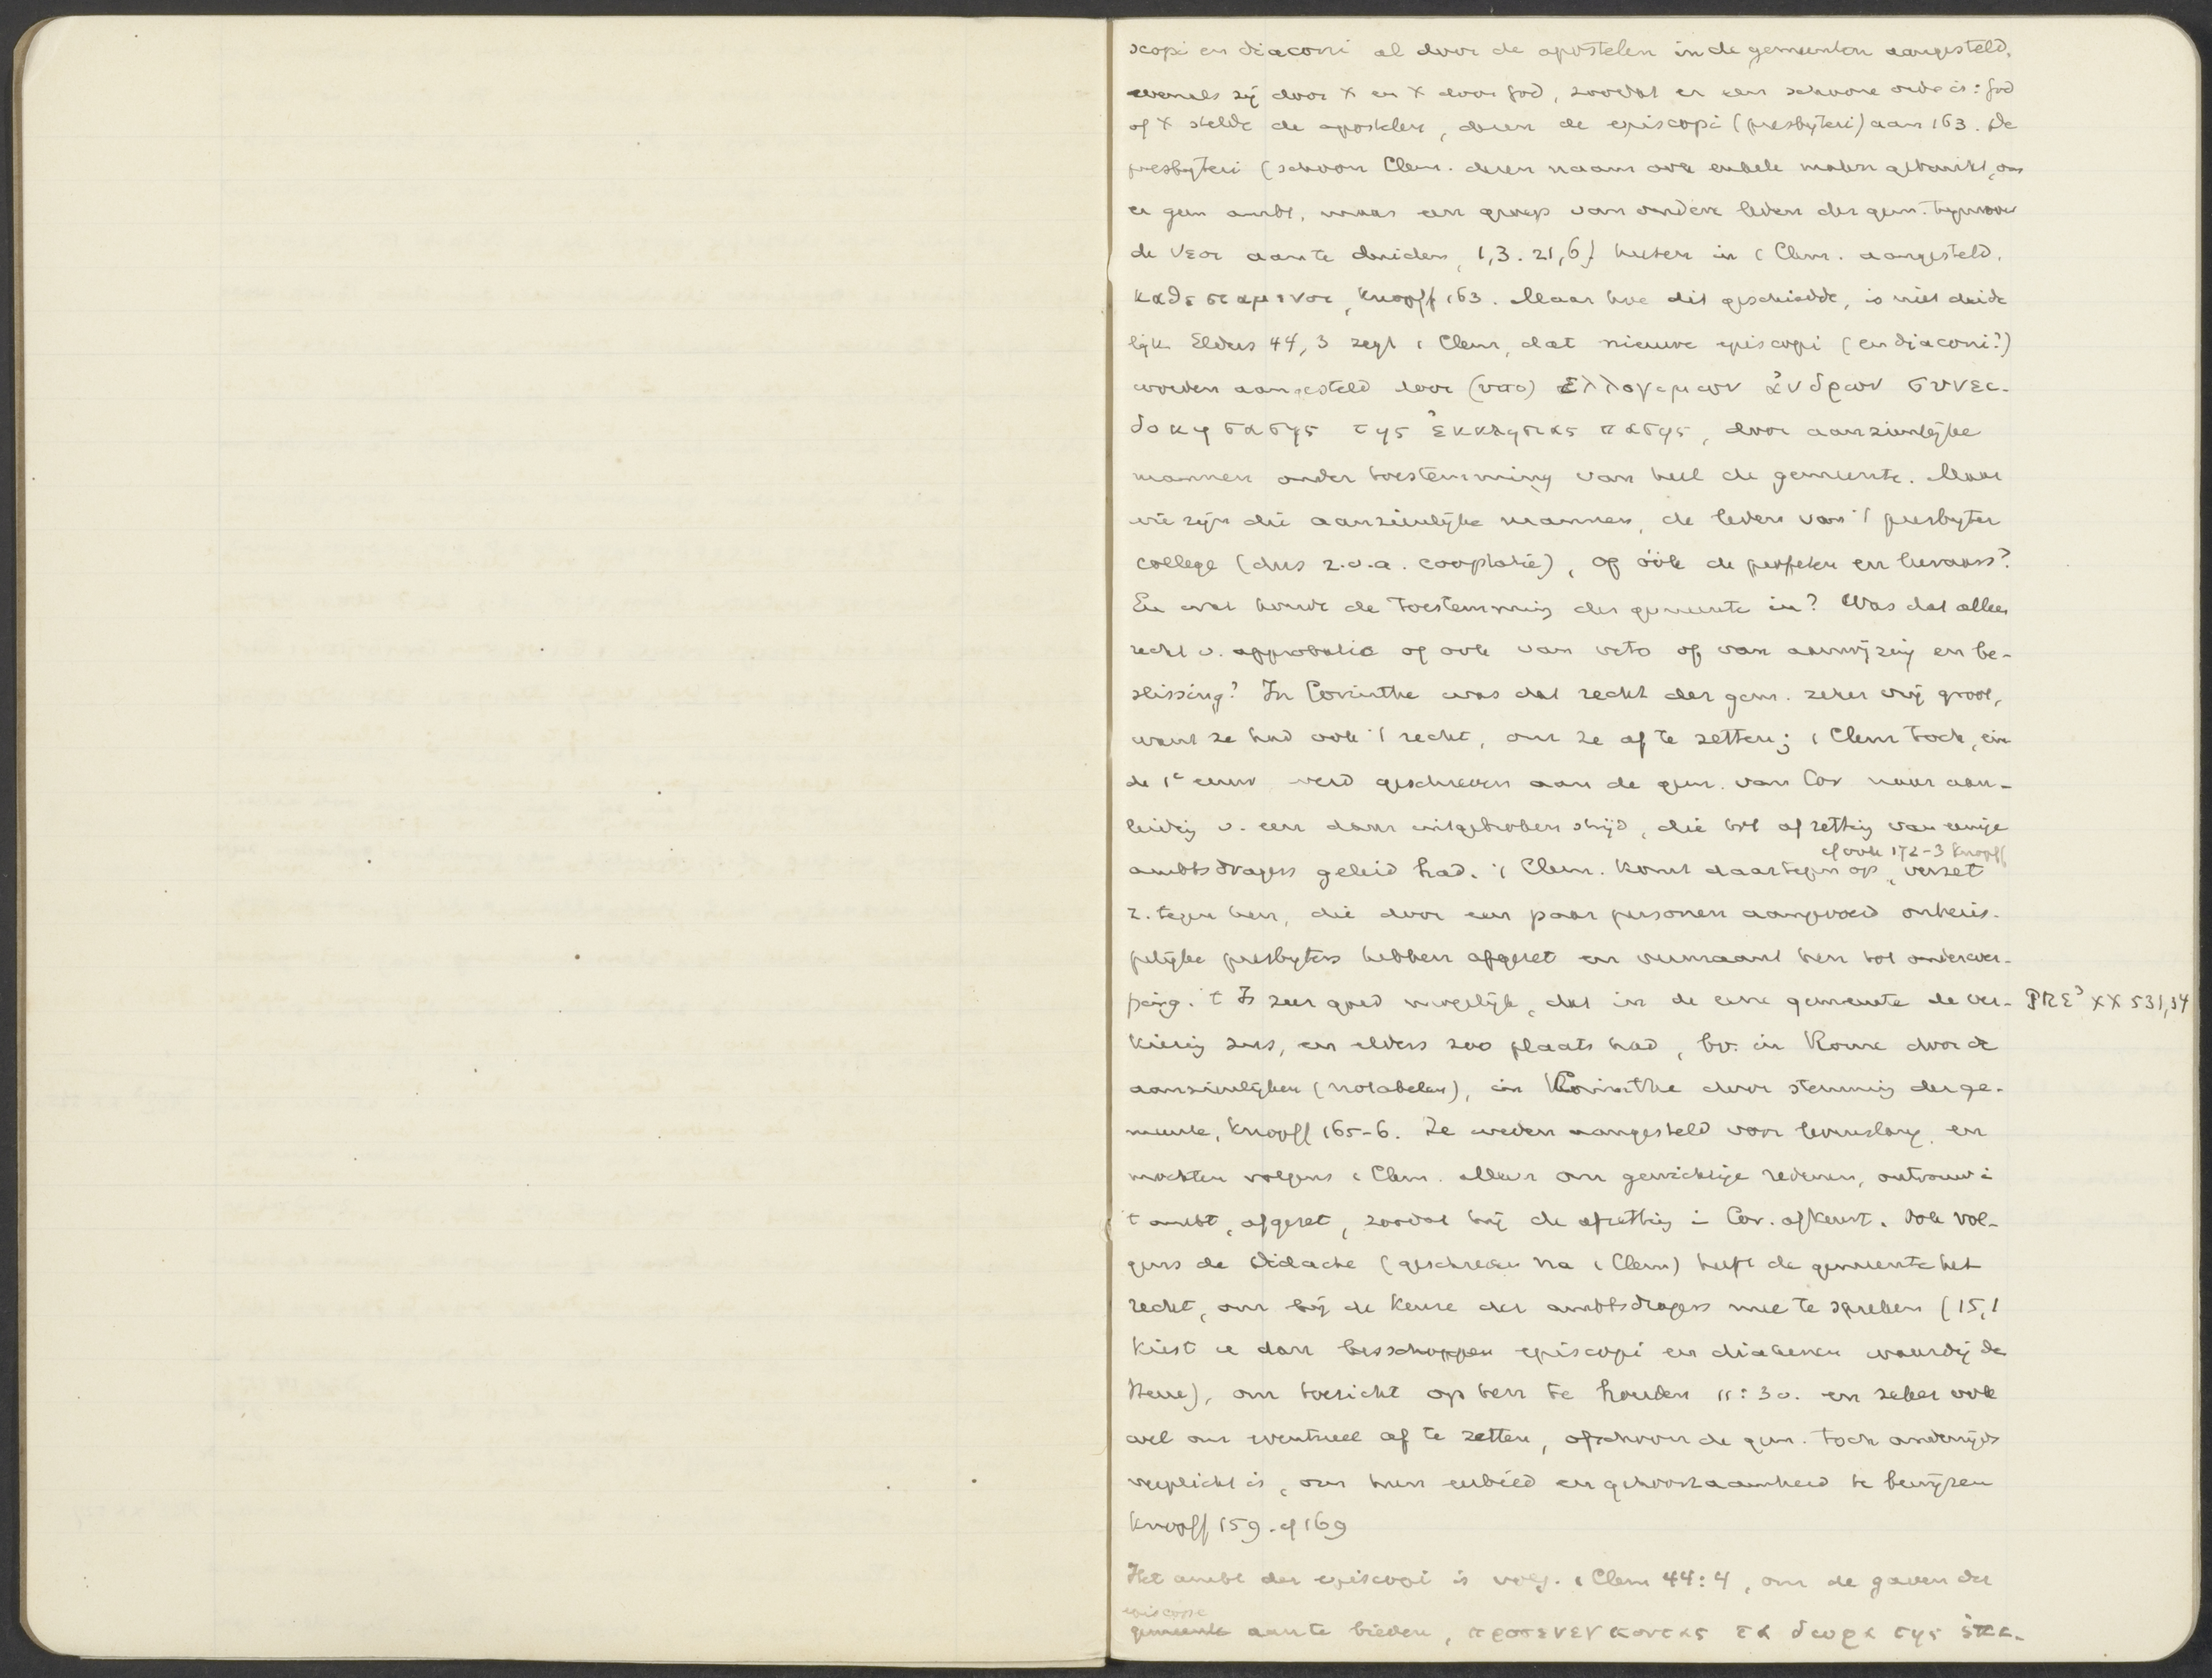 scopi en diaconi al door de apostelen in de gemeenten aangesteld,
evenals zij door X en X door God, zoodat er een schoone orde is: God
of X stelde de apostelen, dezen de episcopi (presbyteri) aan 163. De
presbyteri (schoon Clem. dezen naam ook enkele malen gebruikt, om
er geen ambt, maar een groep van oudere leden der gem. tegenover
de νεοι aan te duiden, 1,3. 21,6) heeten in 1 Clem. aangesteld,
καθεσταμενοι, Knopff 163. Maar hoe dit geschiedde, is niet duide
lijk. Elders 44,3 zegt 1 Clem, dat nieuwe episcopi (en diaconi?)
worden aangesteld door (υπο) ἐλλογιμων ἀνδρων συνευ-
δοκησασης της ἐκκλησιας πασης, door aanzienlijke
mannen onder toestemming van heel de gemeente. Maar
wie zijn die aanzienlijke mannen, de leden van 't presbyter
college (dus z.v.a. coöptatie), of óók de profeten en leeraars?
En wat houdt de toestemming der gemeente in? Was dat alleen
recht v. approbatie of ook van veto of van aanwijzing en be-
slissing? In Corinthe was dat recht der gem. zeker vrij groot,
want ze had ook 't recht, om ze af te zetten; 1 Clem toch, ein
de 1e eeuw werd geschreven aan de gem. van Cor naar aan-
leiding v. een daar uitgebroken strijd, die tot afzetting van eenige
cf ook 172-3 Knopff
ambtsdragers geleid had. 1 Clem. komt daartegen op, verzet
z. tegen hen, die door een paar personen aangevoerd onberis-
pelijke presbyters hebben afgezet en vermaant hen tot onderwer-
ping. 't Is zeer goed mogelijk, dat in de eene gemeente de ver- PRE³ XX 531,34
kiezing zus, en elders zoo plaats had, bv. in Rome door de
aanzienlijken (notabelen), in Corinthe door stemming der ge-
meente, Knopff 165-6. Ze werden aangesteld voor levenslang en
mochten volgens 1 Clem. alleen om gewichtige redenen, ontrouw i
't ambt, afgezet, zoodat hij de afzetting i Cor. afkeurt. Ook vol-
gens de Didache (geschreven na 1 Clem) heeft de gemeente het
recht, om bij de keuze der ambtsdragers mee te spreken (15,1
kiest u dan bisschoppen episcopi en diakenen waardig de
Heere), om toezicht op hen te houden 11:3v. en zeker ook
wel om eventueel af te zetten, ofschoon de gem. toch anderzijds
verplicht is, om hun eerbied en gehoorzaamheid te bewijzen
Knopff 159. cf 169
Het ambt der episcopi is volg. 1 Clem 44:4, om de gaven der
episcope
gemeente aan te bieden, προσενεγκοντας τα δωρα της ἐπισ-